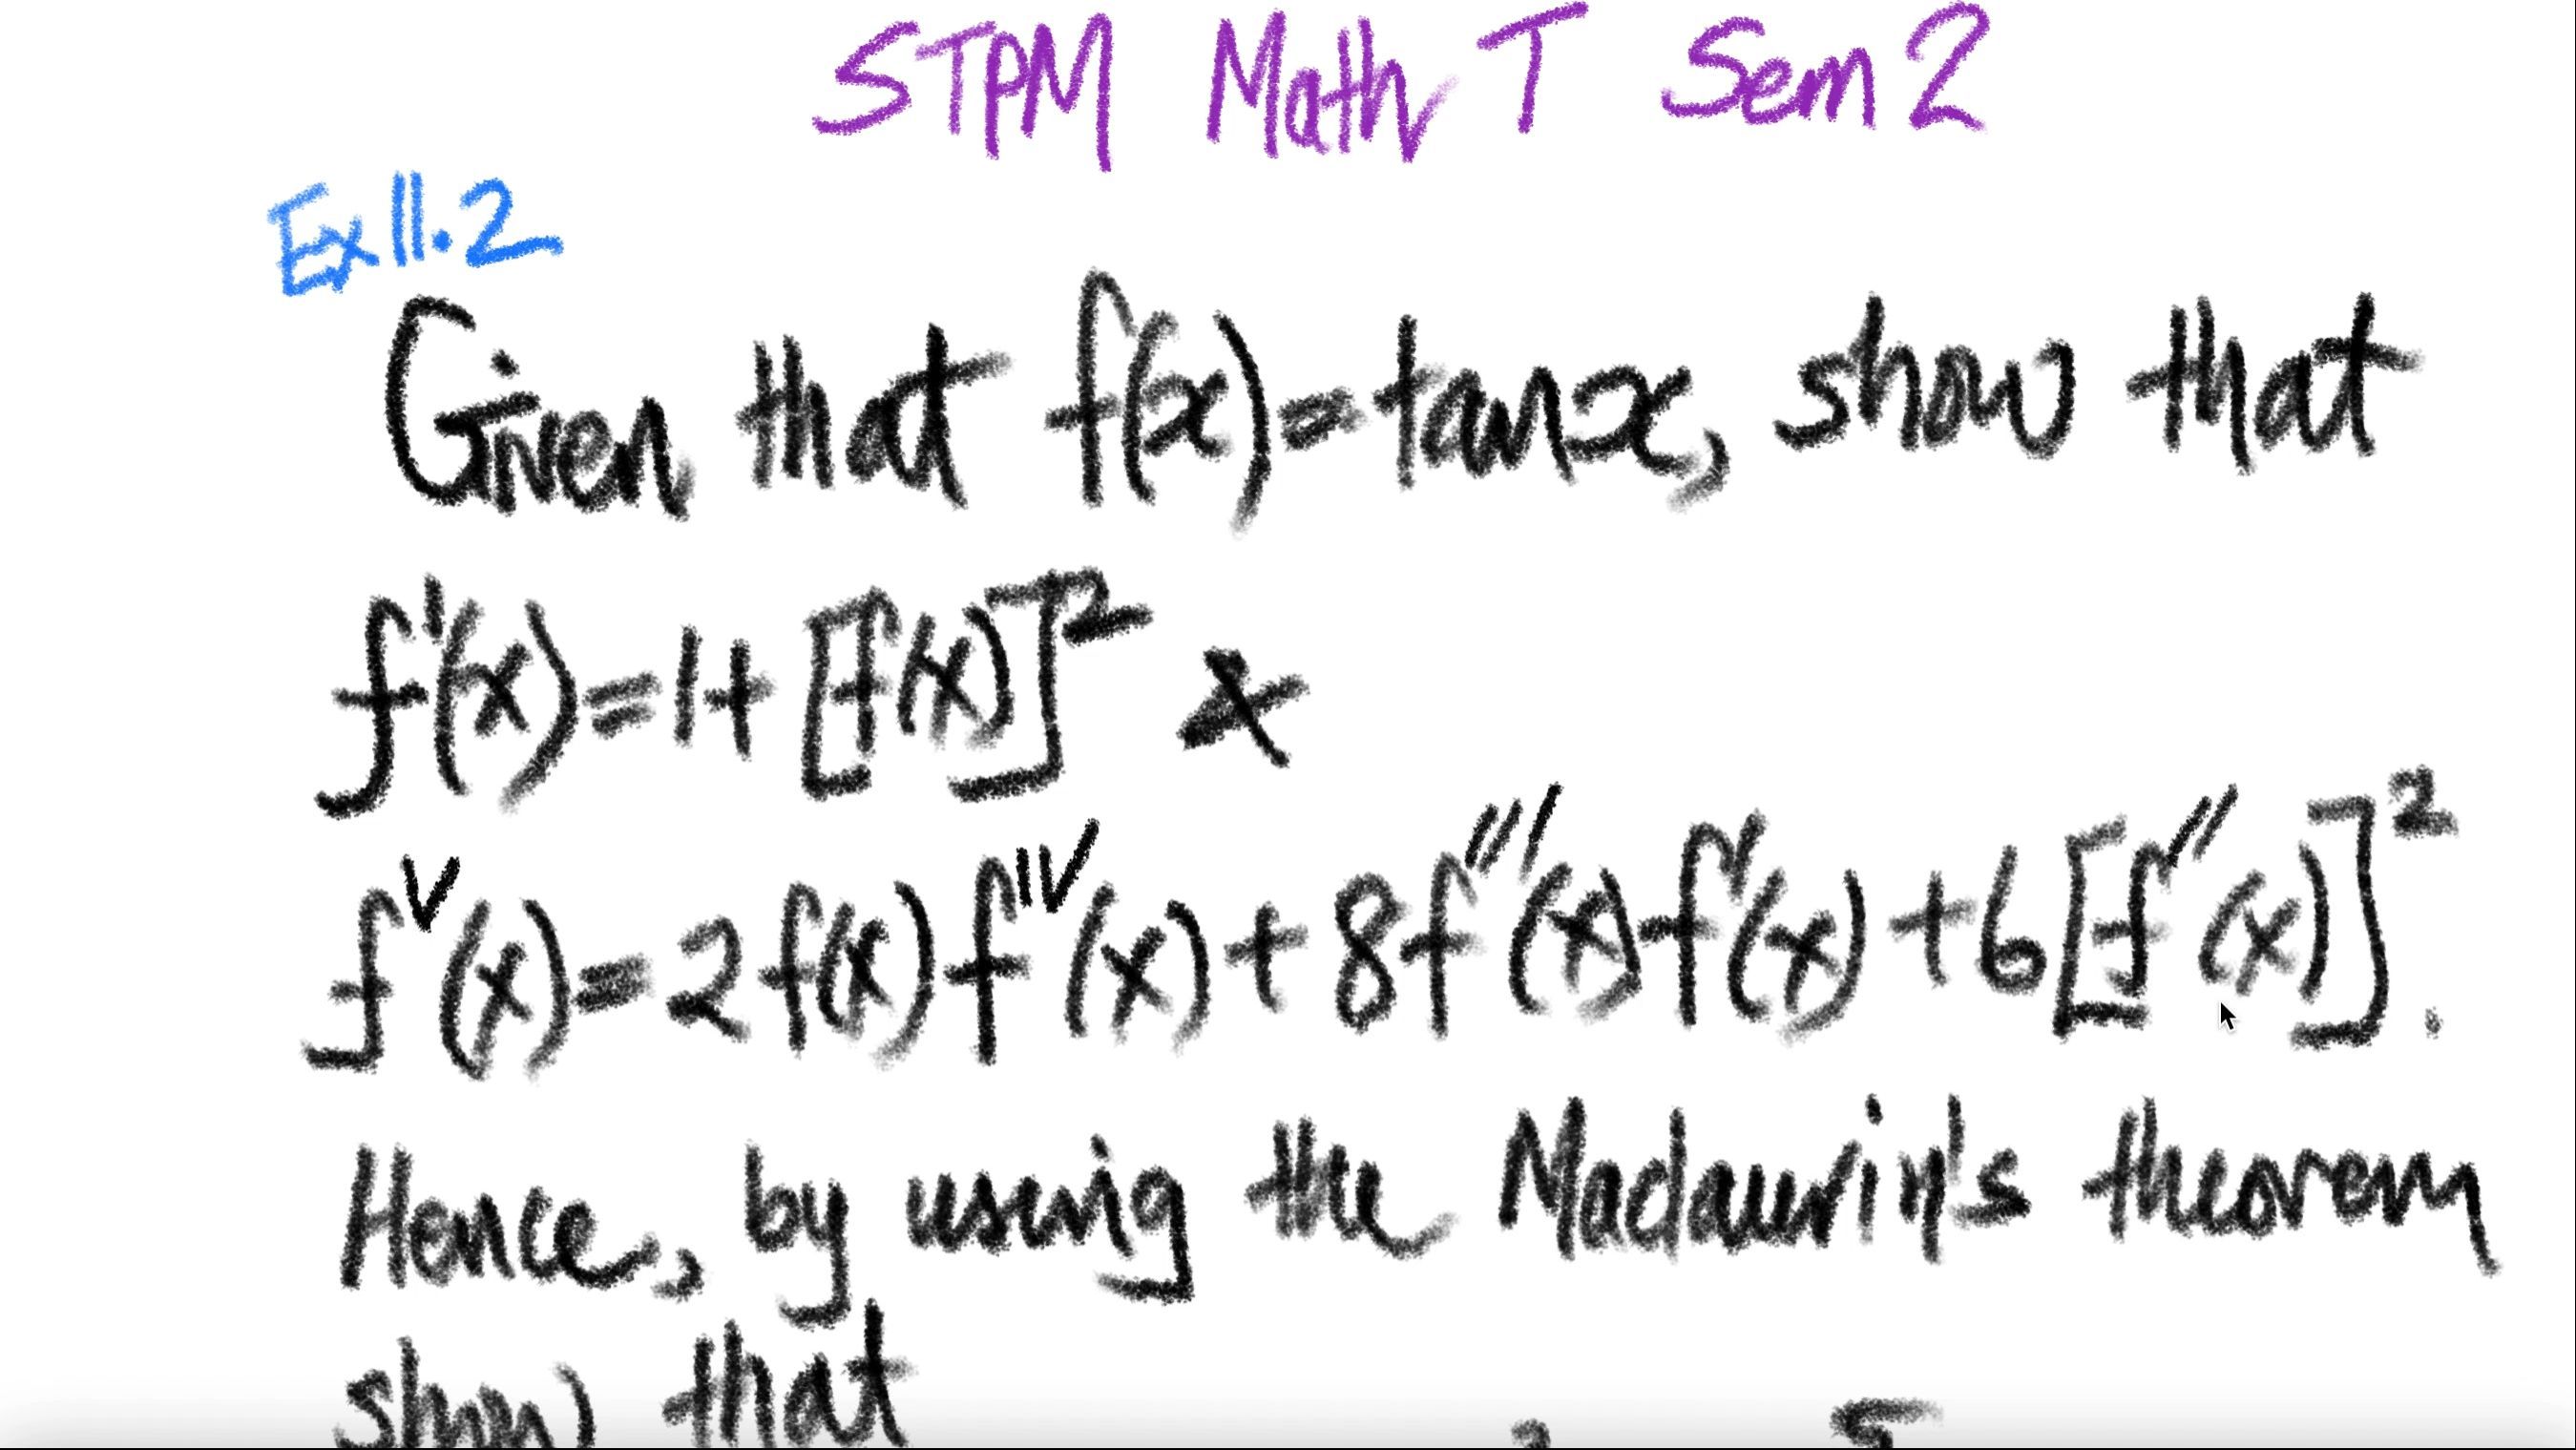 STPM Math T Sem 2
Ex 11.2
Given that f(x)=tanx, show that
f'(x)=1+[f(x)]² &
fⱽ(x)=2f(x)fᴵⱽ(x)+8f'''(x)f'(x)+6[f''(x)]².
Hence, by using the Maclaurin's theorem
show that